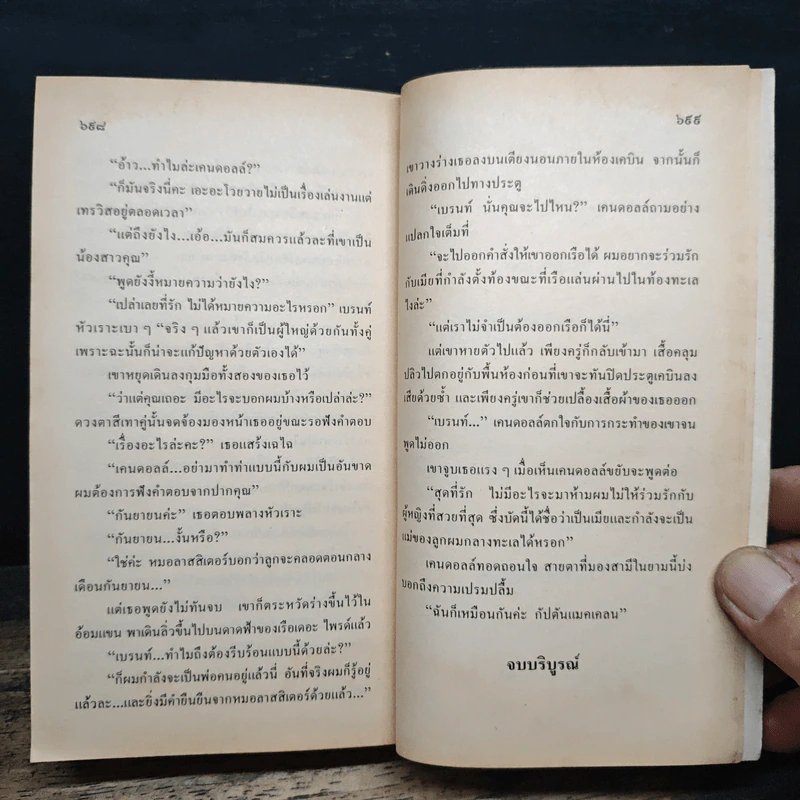 ๖๙๘
“อ้าว...ทำไมล่ะเคนดอลล์?”
“ก็มันจริงนี่คะ เอะอะโวยวายไม่เป็นเรื่องเล่นงานแต่
เทรวิสอยู่ตลอดเวลา”
“แต่ถึงยังไง...เอ้อ...มันก็สมควรแล้วละที่เขาเป็น
น้องสาวคุณ”
“พูดยังงี้หมายความว่ายังไง?”
“เปล่าเลยที่รัก ไม่ได้หมายความอะไรหรอก” เบรนท์
หัวเราะเบา ๆ “จริง ๆ แล้วเขาก็เป็นผู้ใหญ่ด้วยกันทั้งคู่
เพราะฉะนั้นก็น่าจะแก้ปัญหาด้วยตัวเองได้”
เขาหยุดเดินลงกุมมือทั้งสองของเธอไว้
“ว่าแต่คุณเถอะ มีอะไรจะบอกผมบ้างหรือเปล่าล่ะ?”
ดวงตาสีเทาคู่นั้นจดจ้องมองหน้าเธออยู่ขณะรอฟังคำตอบ
“เรื่องอะไรล่ะคะ?” เธอแสร้งเฉไฉ
“เคนดอลล์...อย่ามาทำท่าแบบนี้กับผมเป็นอันขาด
ผมต้องการฟังคำตอบจากปากคุณ”
“กันยายนค่ะ” เธอตอบพลางหัวเราะ
“กันยายน...งั้นหรือ?”
“ใช่ค่ะ หมอลาสสิเตอร์บอกว่าลูกจะคลอดตอนกลาง
เดือนกันยายน...”
แต่เธอพูดยังไม่ทันจบ เขาก็ตระหวัดร่างขึ้นไว้ใน
อ้อมแขน พาเดินลิ่วขึ้นไปบนดาดฟ้าของเรือเดอะ ไพรด์แล้ว
“เบรนท์...ทำไมถึงต้องรีบร้อนแบบนี้ด้วยล่ะ?”
“ก็ผมกำลังจะเป็นพ่อคนอยู่แล้วนี่ อันที่จริงผมก็รู้อยู่
แล้วละ...และยิ่งมีคำยืนยันจากหมอลาสสิเตอร์ด้วยแล้ว...”
๖๙๙
เขาวางร่างเธอลงบนเตียงนอนภายในห้องเคบิน จากนั้นก็
เดินดิ่งออกไปทางประตู
“เบรนท์ นั่นคุณจะไปไหน?” เคนดอลล์ถามอย่าง
แปลกใจเต็มที่
“จะไปออกคำสั่งให้เขาออกเรือได้ ผมอยากจะร่วมรัก
กับเมียที่กำลังตั้งท้องขณะที่เรือแล่นผ่านไปในท้องทะเล
ไงล่ะ”
“แต่เราไม่จำเป็นต้องออกเรือก็ได้นี่”
แต่เขาหายตัวไปแล้ว เพียงครู่ก็กลับเข้ามา เสื้อคลุม
ปลิวไปตกอยู่กับพื้นห้องก่อนที่เขาจะทันปิดประตูเคบินลง
เสียด้วยซ้ำ และเพียงครู่เขาก็ช่วยเปลื้องเสื้อผ้าของเธอออก
“เบรนท์...” เคนดอลล์ตกใจกับการกระทำของเขาจน
พูดไม่ออก
เขาจูบเธอแรง ๆ เมื่อเห็นเคนดอลล์ขยับจะพูดต่อ
“สุดที่รัก ไม่มีอะไรจะมาห้ามผมไม่ให้ร่วมรักกับ
ผู้หญิงที่สวยที่สุด ซึ่งบัดนี้ได้ชื่อว่าเป็นเมียและกำลังจะเป็น
แม่ของลูกผมกลางทะเลได้หรอก”
เคนดอลล์ทอดถอนใจ สายตาที่มองสามีในยามนี้บ่ง
บอกถึงความเปรมปลื้ม
“ฉันก็เหมือนกันค่ะ กัปตันแมคเคลน”
จบบริบูรณ์